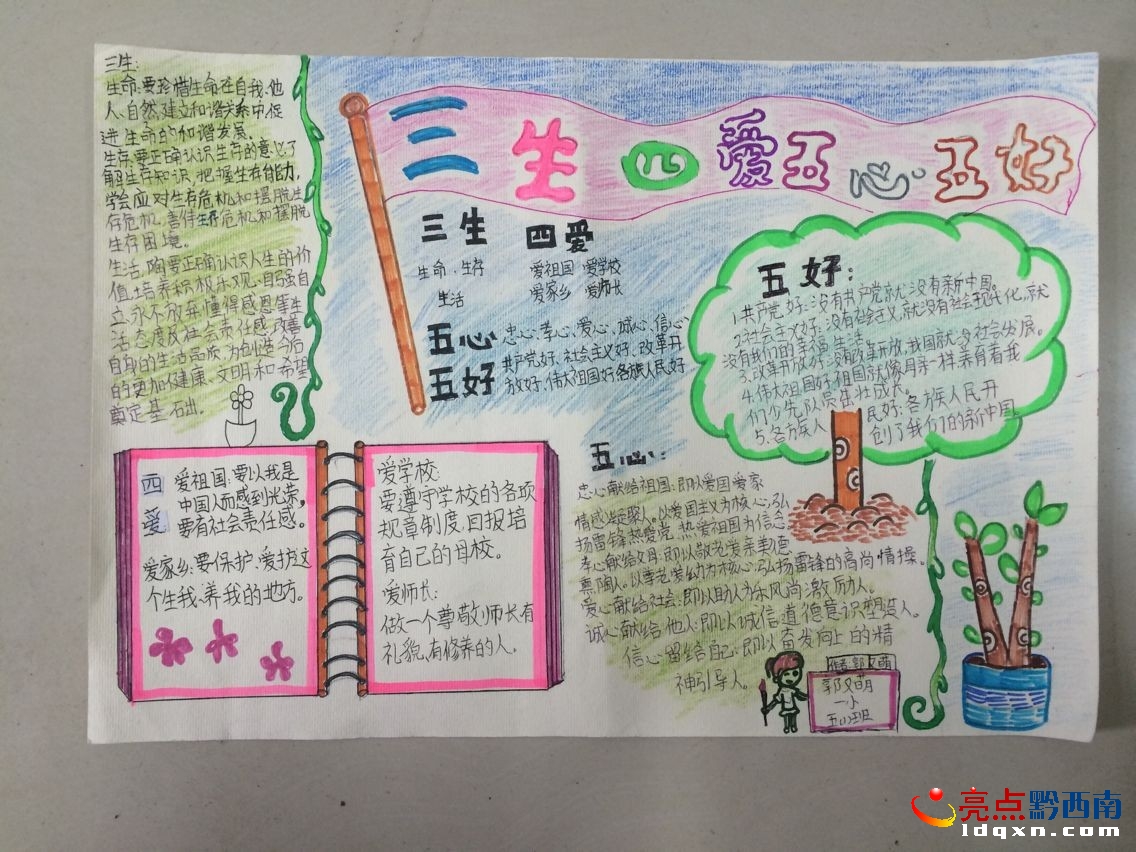 三生四爱五心五好
三生:
生命:要珍惜生命在自我、他
人、自然,建立和谐关系中,促
进生命的和谐发展。
生存:要正确认识生存的意义了
解生存知识,把握生存有能力,
学会应对生存危机和摆脱生
存危机,善待生存危机和摆脱
生存困境。
生活:陶要正确认识人生的价
值,培养积极乐观、自强自
立、永不放弃、懂得感恩等生
活态度及社会责任感,改善
自身的生活品质,为创造今后
的更加健康、文明和希望
奠定基础。
三生
生命、生存
生活
四爱
爱祖国 爱学校
爱家乡 爱师长
五心 忠心、孝心、爱心、诚心、信心
五好 共产党好、社会主义好、改革开
放好、伟太祖国好各族人民好
五好:
1.共产党好:没有共产党就没有亲新中国。
2.社会主义好:没有社会主义,就没有社会现代化,就
没有我们的幸福生活。
3.改革开放好:没有改革开放,我国就没社会发展。
4.伟太祖国好:祖国就像母亲一样养育着我
们少先队员茁壮成长。
5.各方族人民好:各方族人民开
创了我们的新中国
四爱
爱祖国:要以我是
中国人而感到光荣,
要有社会责任感。
爱家乡:要保护、爱护这
个生我、养我的地方。
爱学校:
要遵守学校的各项
规章制度,回报培
育自己的母校。
爱师长:
做一个尊敬师长有
礼貌,有修养的人。
五心:
忠心献给祖国:即以爱国爱家
情感凝聚人。以爱国主义为核心,弘
扬雷锋热爱党、热爱祖国为信念。
孝心献给父母:即以敬老爱亲美德
熏陶人。以孝老爱幼为核心,弘扬雷锋的高尚情操。
爱心献给社会:即以助人为乐风尚激励人。
诚心献给他人:即以诚信道德意识塑造人。
信心留给自己:即以奋发向上的精
神引导人。
作者:郭又萌
郭又萌
一小
五(1)班
亮点黔西南
ldqxn.com